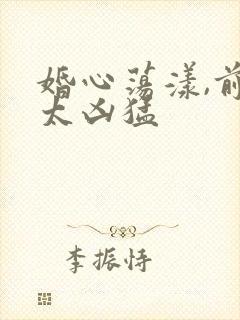 婚心荡漾,前
太凶猛
李振恃